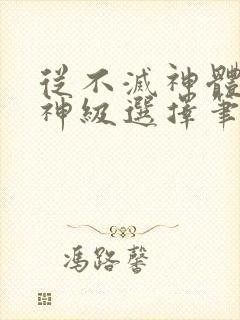 從不滅神體
神級選擇筆
馮路馨